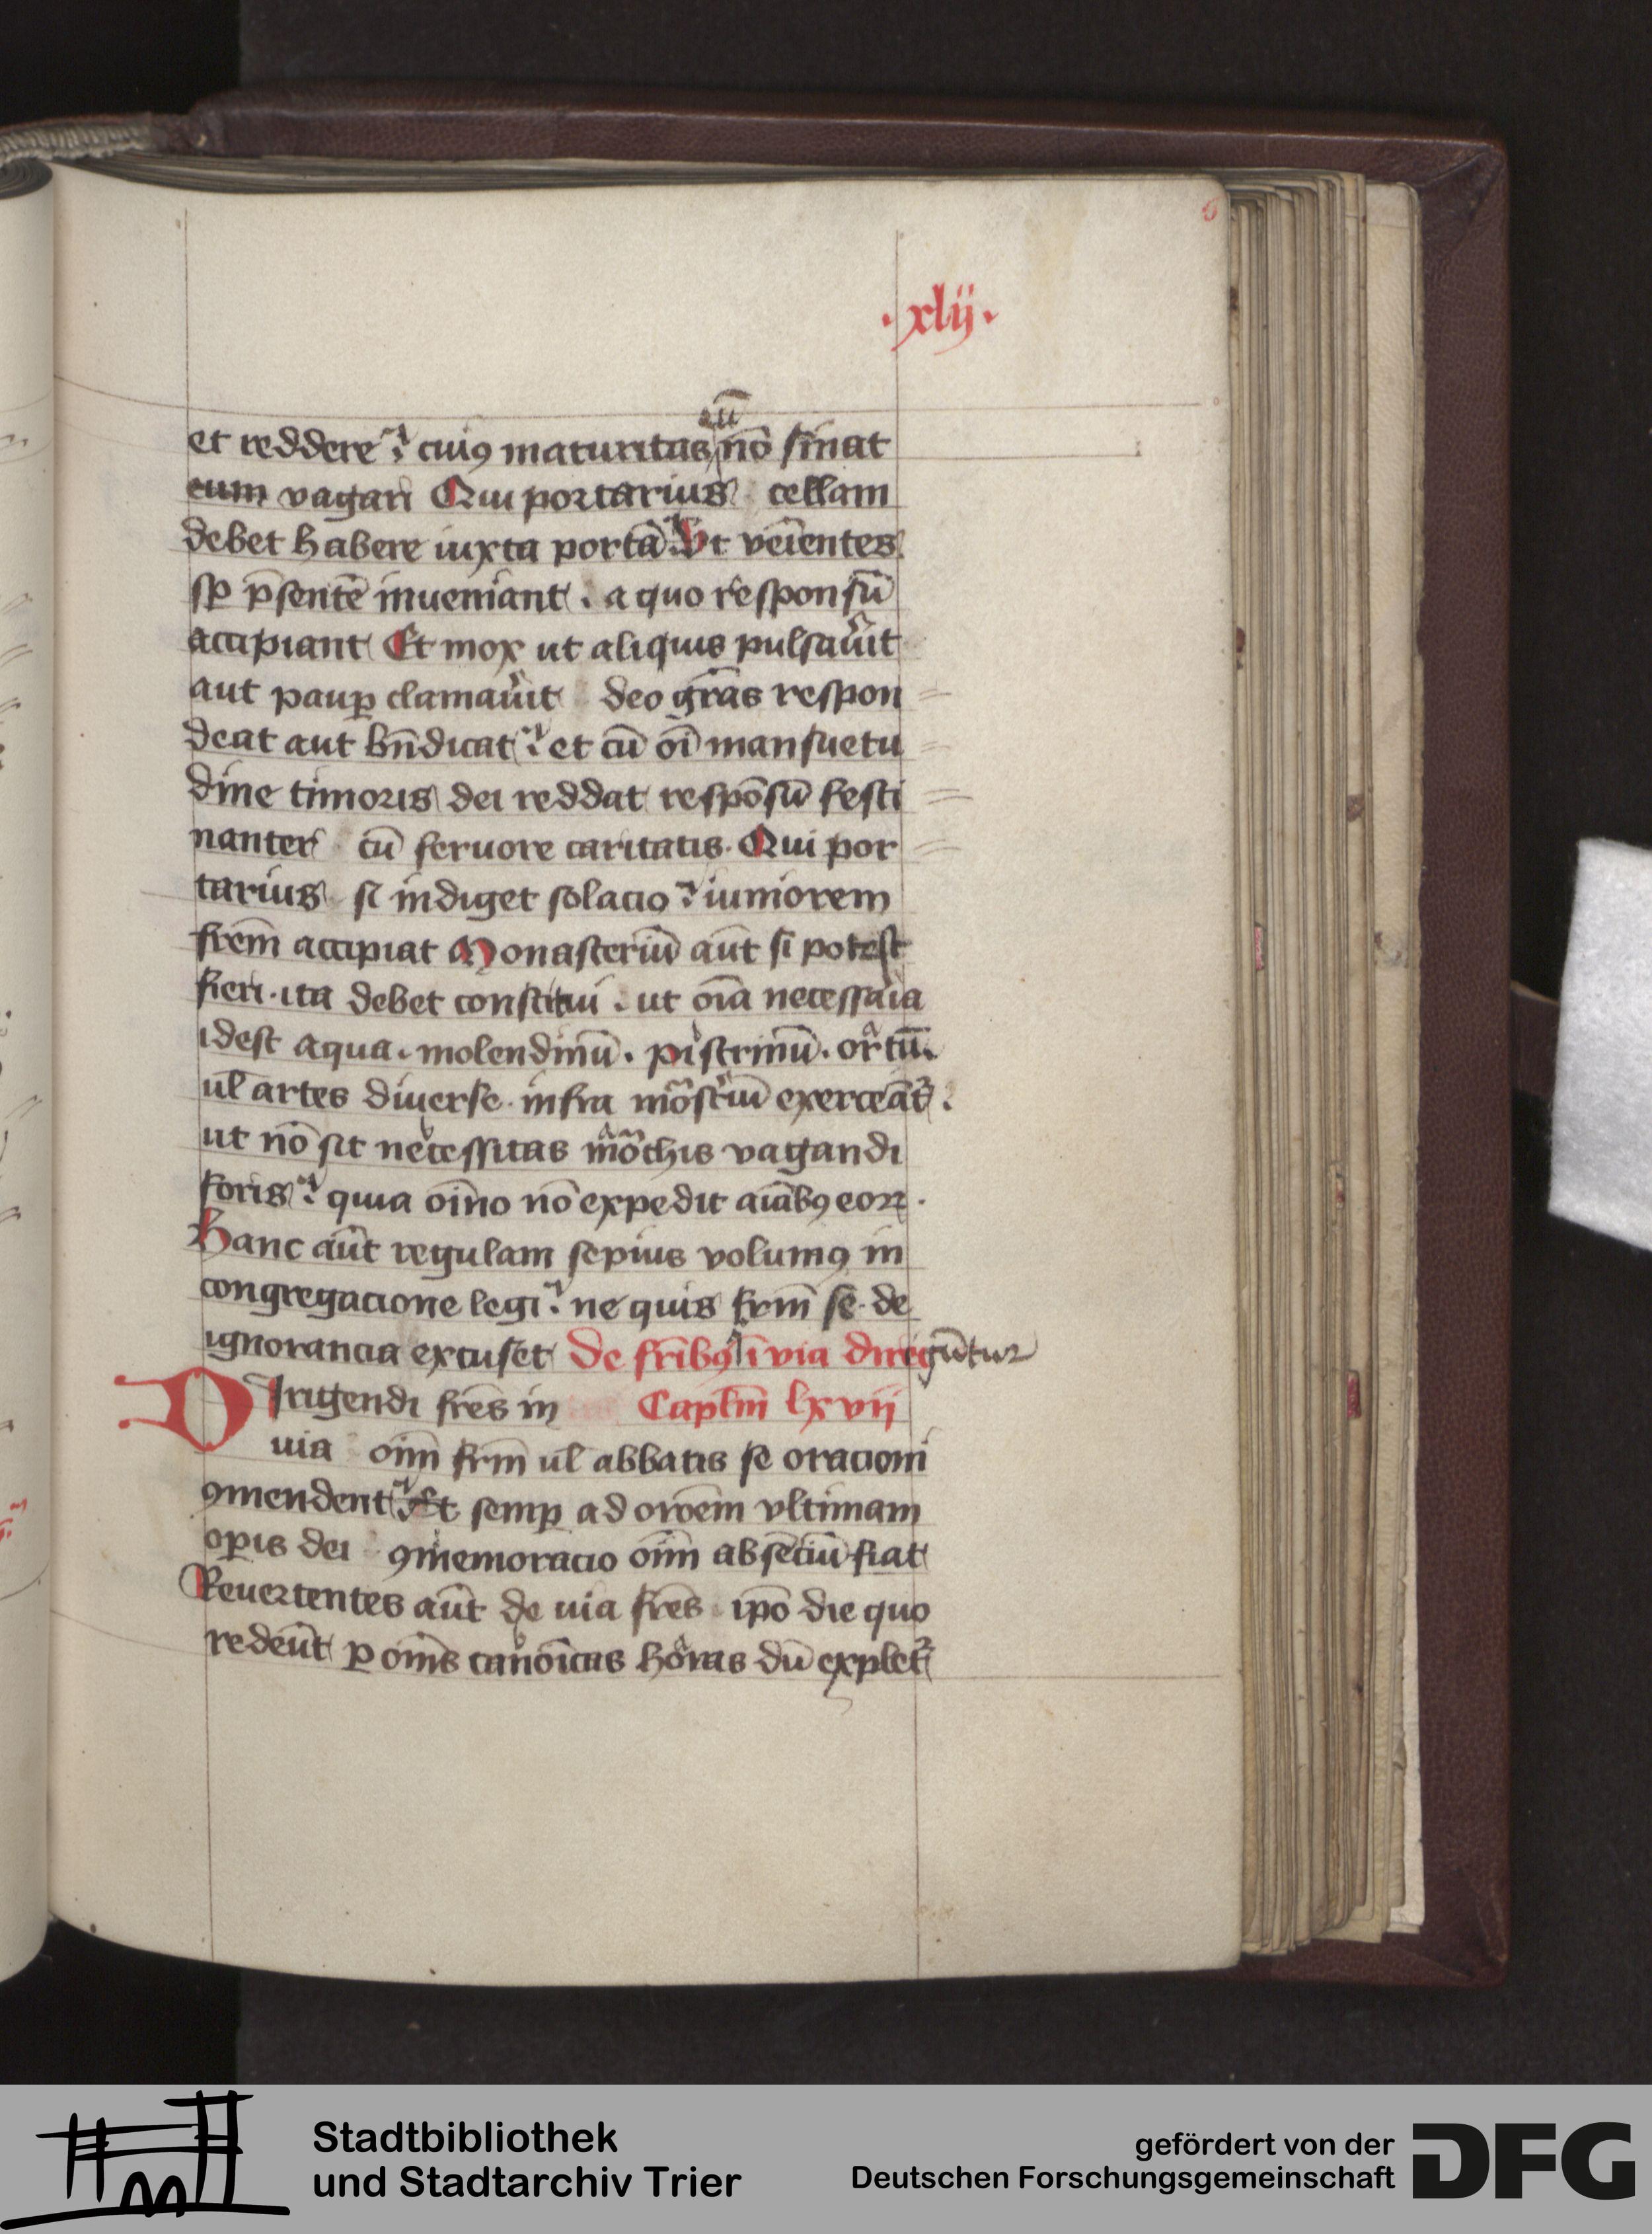 xlij
aū
et reddere cuiꝯ maturitas nō sinat
eum vagari Qui portarius cellam
debet habere iuxta portā Vt veīentes
sꝑ p̄sentē inueniant . a quo responsū
accipiant Et mox ut aliquis pulsauit
aut pauꝑ clamauit deo grās respon
deat aut bn̄dicat et cū oī mansuetu
dine timoris dei reddat respōsū festi
nanter cū feruore caritatis . Qui por
tarius si indiget solacio iuniorem
frem̄ accipiat Monasteriū aūt si potest
fieri . ita debet constitui . ut oīa necessaia
idest aqua . molendinū . pistrinū . ortū .
ul̄ artes diuerse . infra mōstiū exerceāt .
ut nō sit necessitas mōchis vagandi
foris quia oīno nō expedit aīabꝯ eoꝝ .
Hanc aūt regulam sepius volumꝯ in
congregacione legi ne quis frm̄ se . de
ignorancia excuset De frībꝯ ī via dirigūtur
Dirigendi frēs in Capl̄m lxvij
uia oīm frm̄ ul̄ abbatis se oracioni
ꝯmendent Et semꝑ ad oroēm vltimam
oꝑis dei ꝯmemoracio oīm absēciū fiat
Reuertentes aūt de uia frēs ipō die quo
redeūt ꝑ oīnes canōicas horas dū explet
Stadtbibliothek
und Stadtarchiv Trier
gefördert von der
Deutschen Forschungsgemeinschaft
DFG